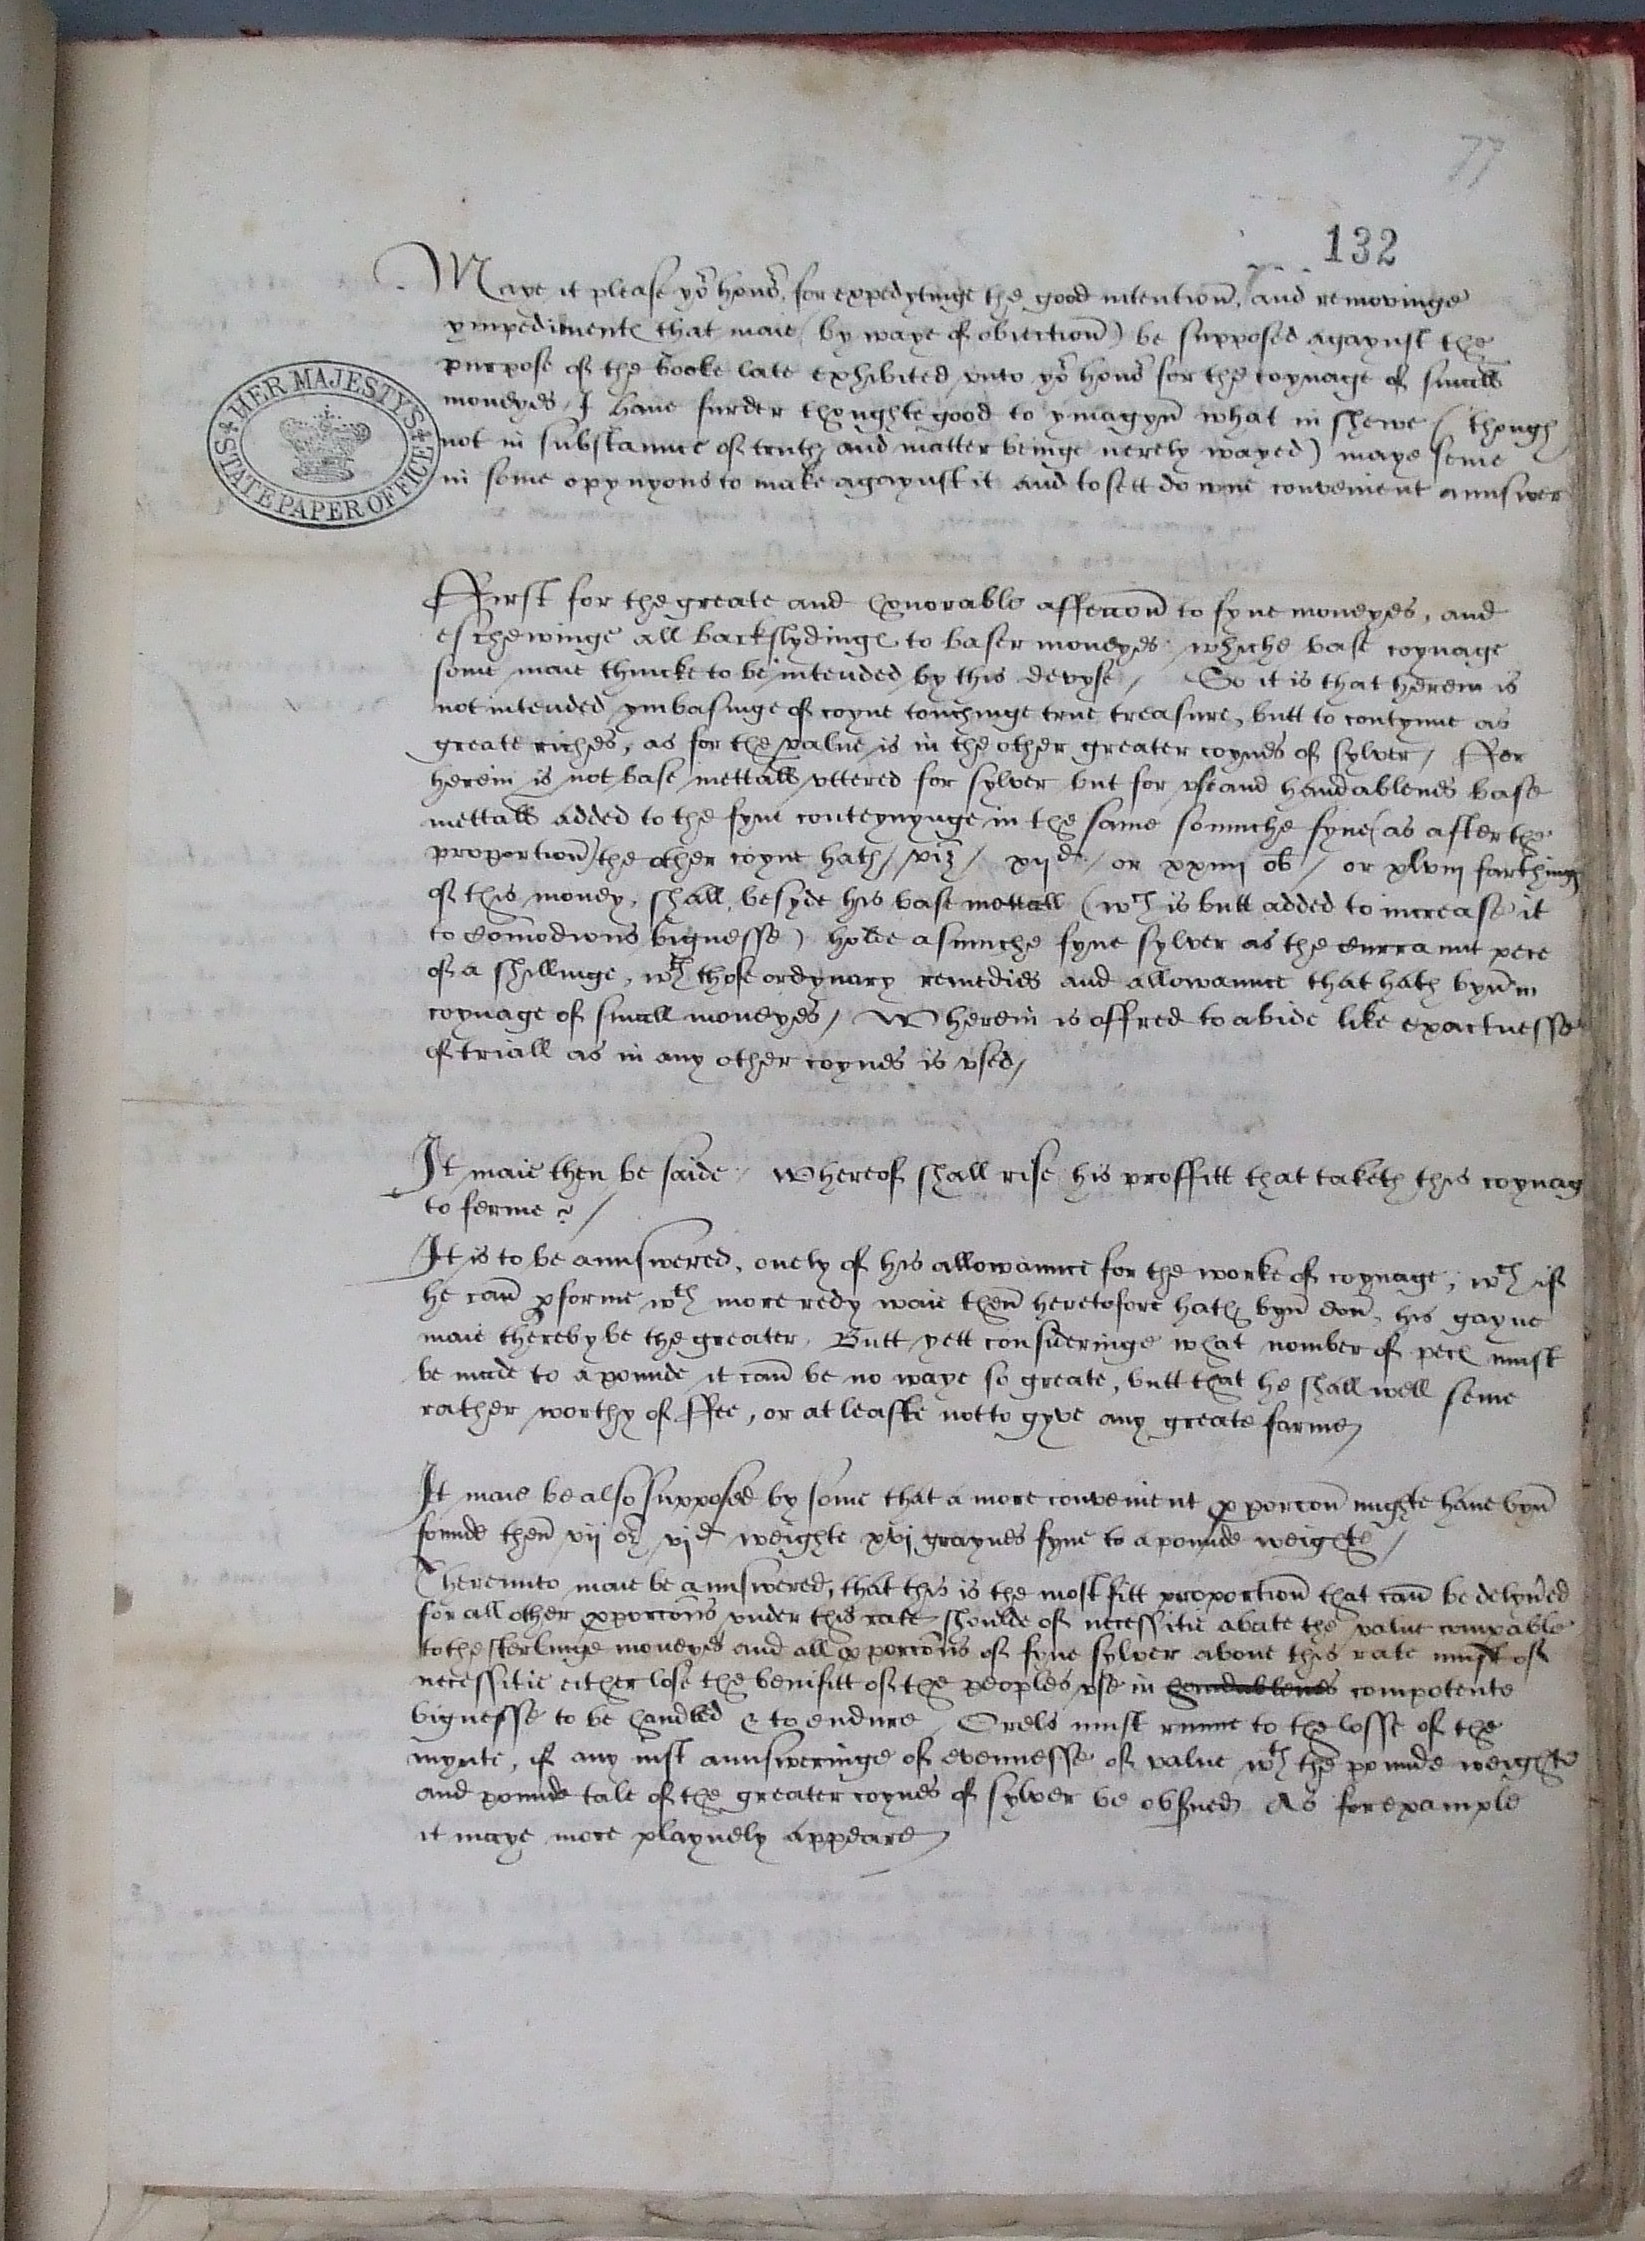 77
132
HER MAJESTY'S STATE PAPER OFFICE
Maye it please yor honor, for expedytinge the good intention, and removinge
ympedimentes that maie (by waye of obiection) be supposed agaynst the
purpose of the booke late exhibited vnto yor honor for the coynage of small
moneyes, I have furder thoughte good to ymagyn what in shewe (though
not in substaunce of truth and matter beinge nerely wayed) maye seme
in some opynyons to make agaynst it and to sett downe convenient aunswer
Ffirst for the greate and honorable affeccon to fyne moneyes, and
eschewinge all backslydinge to baser moneyes whiche base coynage
some maie thincke to be intended by this devyse / So it is that herein is
not intended ymbasinge of coyne touchinge true treasure, butt to contynue as
greate riches, as for the value is in the other greater coynes of sylver / Ffor
herein is not base mettall vttered for sylver but for vse and handablenes base
mettall added to the fyne conteynynge in the same somuche fyne (as after the
proportion) the other coyne hath / viz / xijd / or xxiiij ob / or xlviij farthinges
of this money, shall, besyde his base mettall (wch is butt added to increase it
to comodious bignesse) holde asmuche fyne sylver as the currannt pece
of a shillinge, wth those ordynary remedies and allowaunce that hath byn in
coynage of small moneyes / Wherein is offred to abide like exactnesse
of triall as in any other coynes is vsed /
It maie then be saide / Whereof shall rise his proffitt that taketh this coynag
to ferme? /
It is to be aunswered, onely of his allowaunce for the worke of coynage, wch if
he can pforme wth more redy waie then heretofore hath byn don, his gayne
maie thereby be the greater. Butt yett consideringe what nomber of peces must
be made to a pounde it can be no waye so greate, butt that he shall well seme
rather worthy of ffee, or at leaste not to gyve any greate farme
It maie be also supposed by some that a more convenient pporcon mighte have byn
founde then vij oz vjd weighte xvj graynes fyne to a pounde weighte /
Thereunto maie be aunswered, that this is the most fitt proportion that can be devyned
for all other pporcons vnder this rate shoulde of necessitie abate the value compable
to the sterlinge moneyes and all pporcons of fyne sylver above this rate must of
necessitie either lose the benifitt of the peoples vse in handablenes competente
bignesse to be handled & to endure / Orels must runne to the losse of the
mynte, if any iust aunsweringe of evennesse of value wth the pounde weighte
and pounde tale of the greater coynes of sylver be obsrved As for example
it maye more playnely appeare